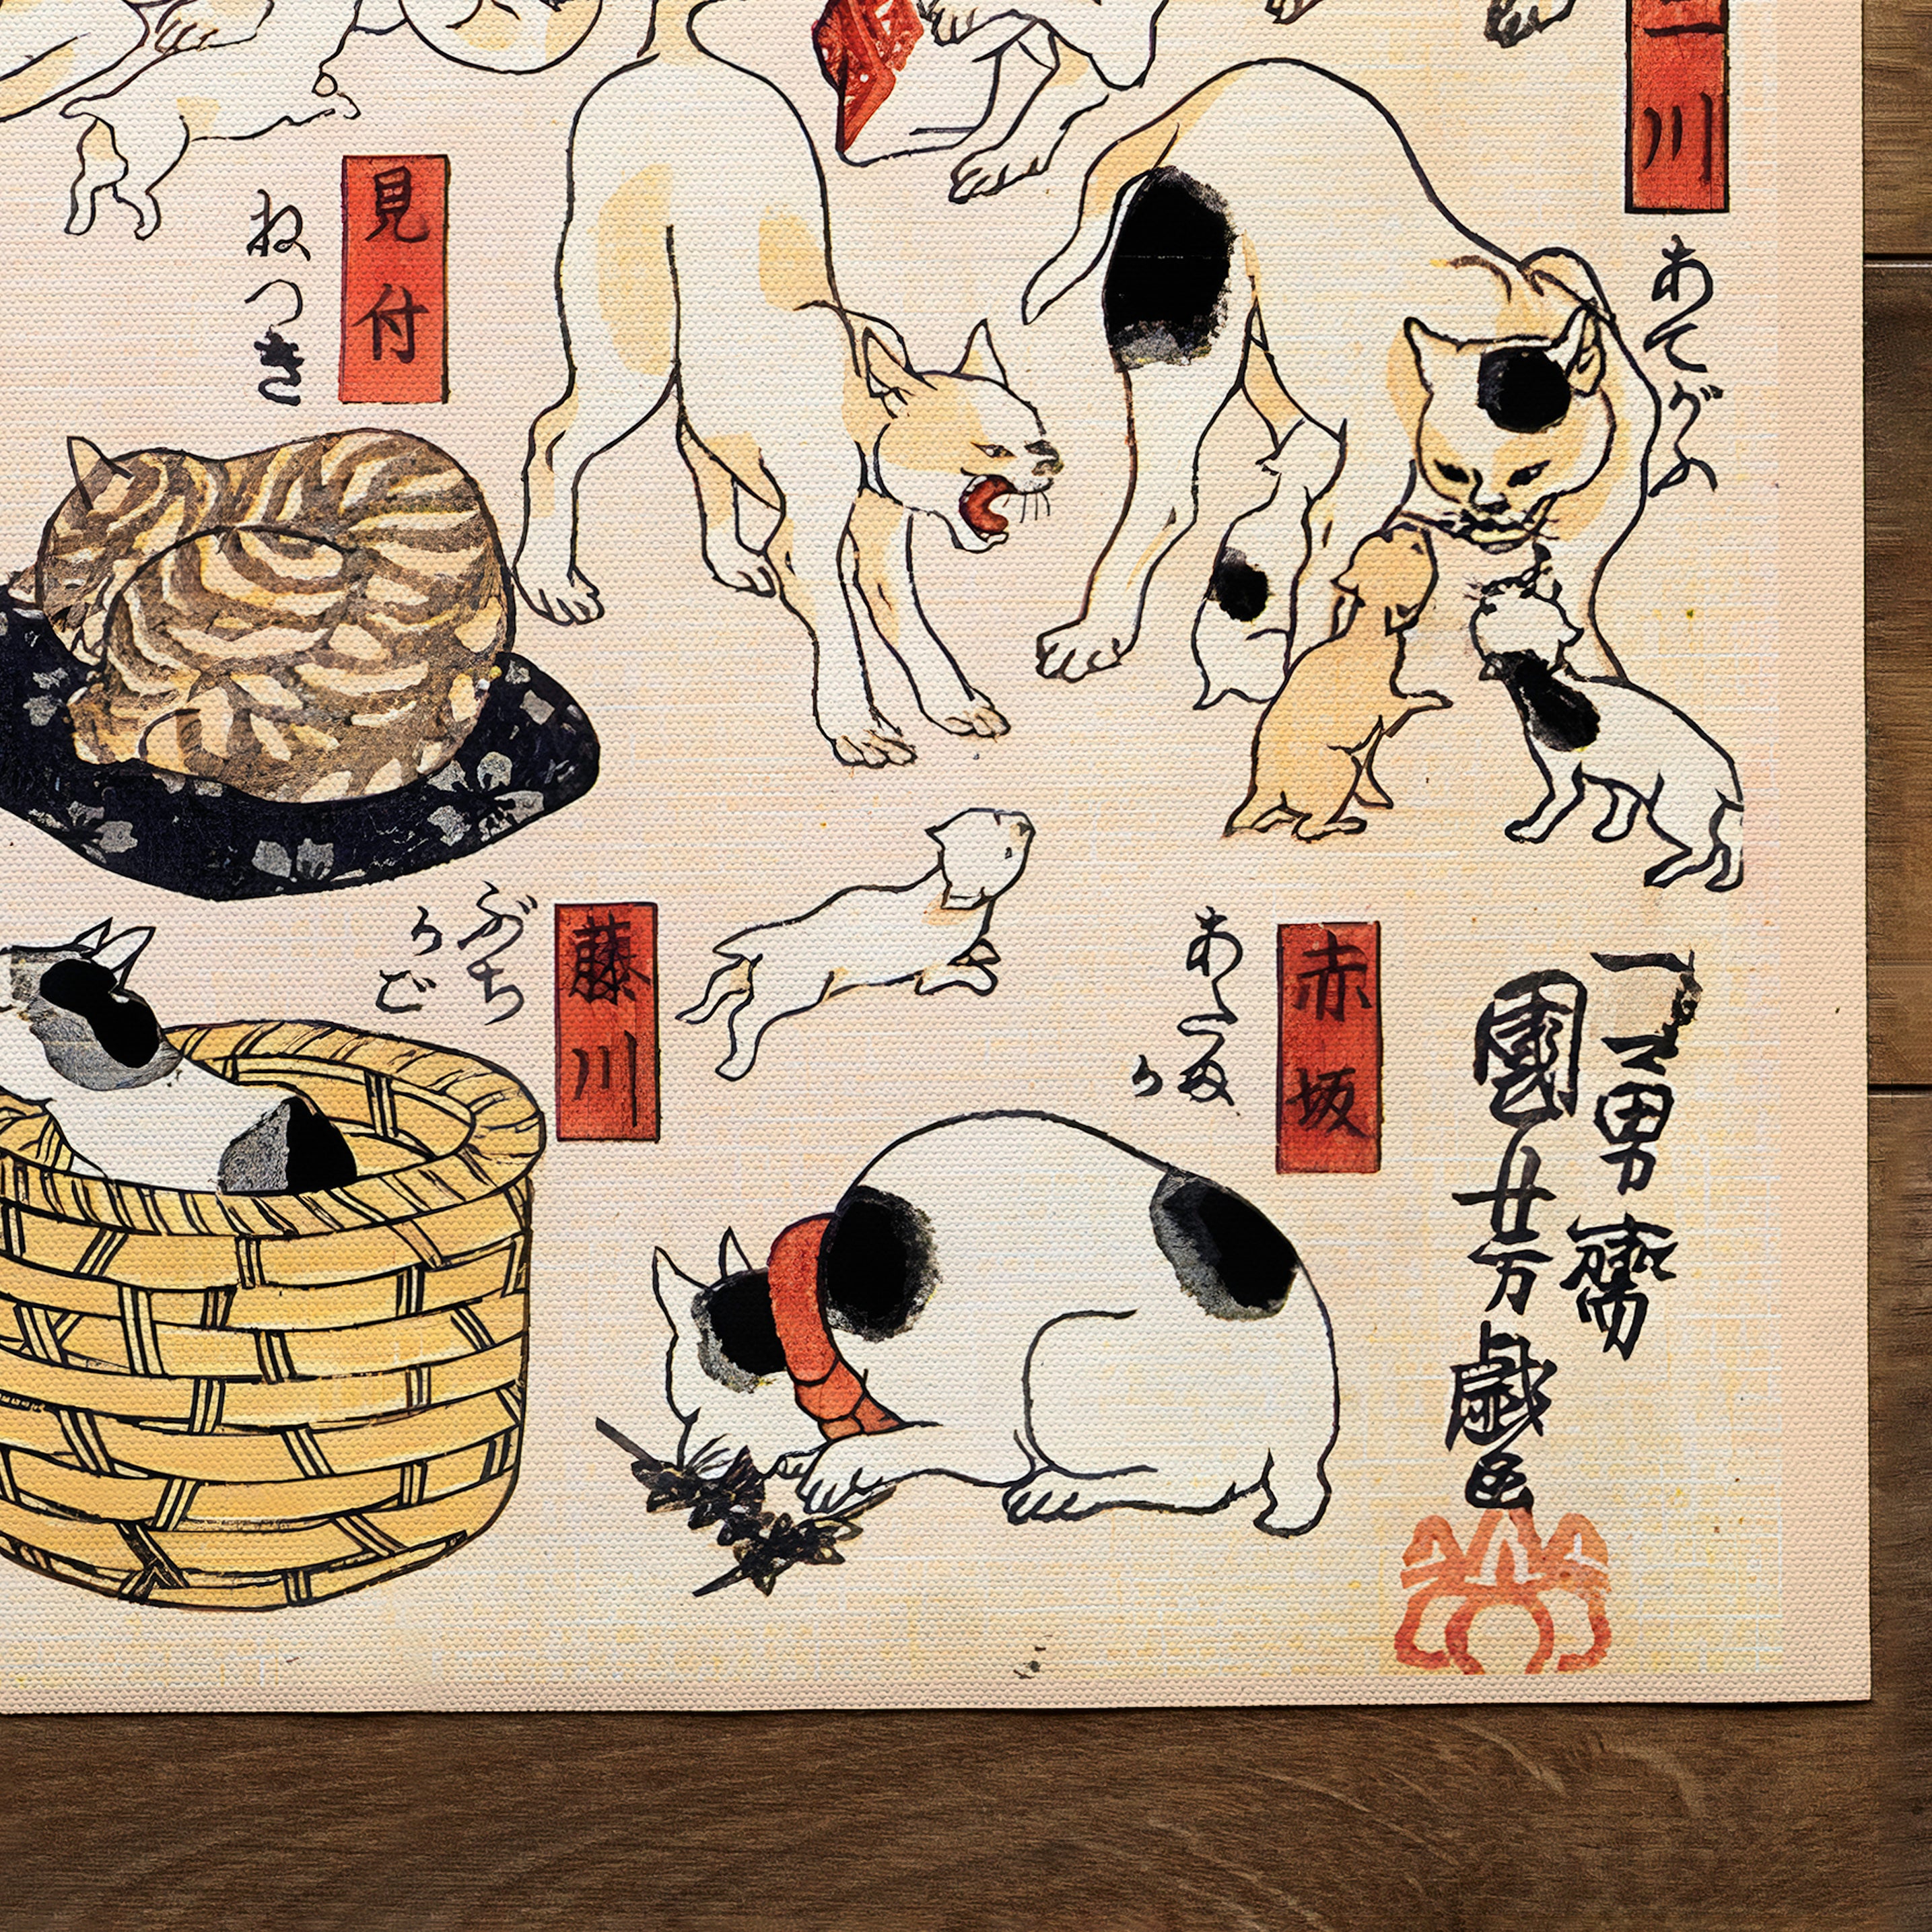 二川
あてがふ
見付
ねつき
一勇齋
國芳戯画
赤坂
藤川
ぶち
かご